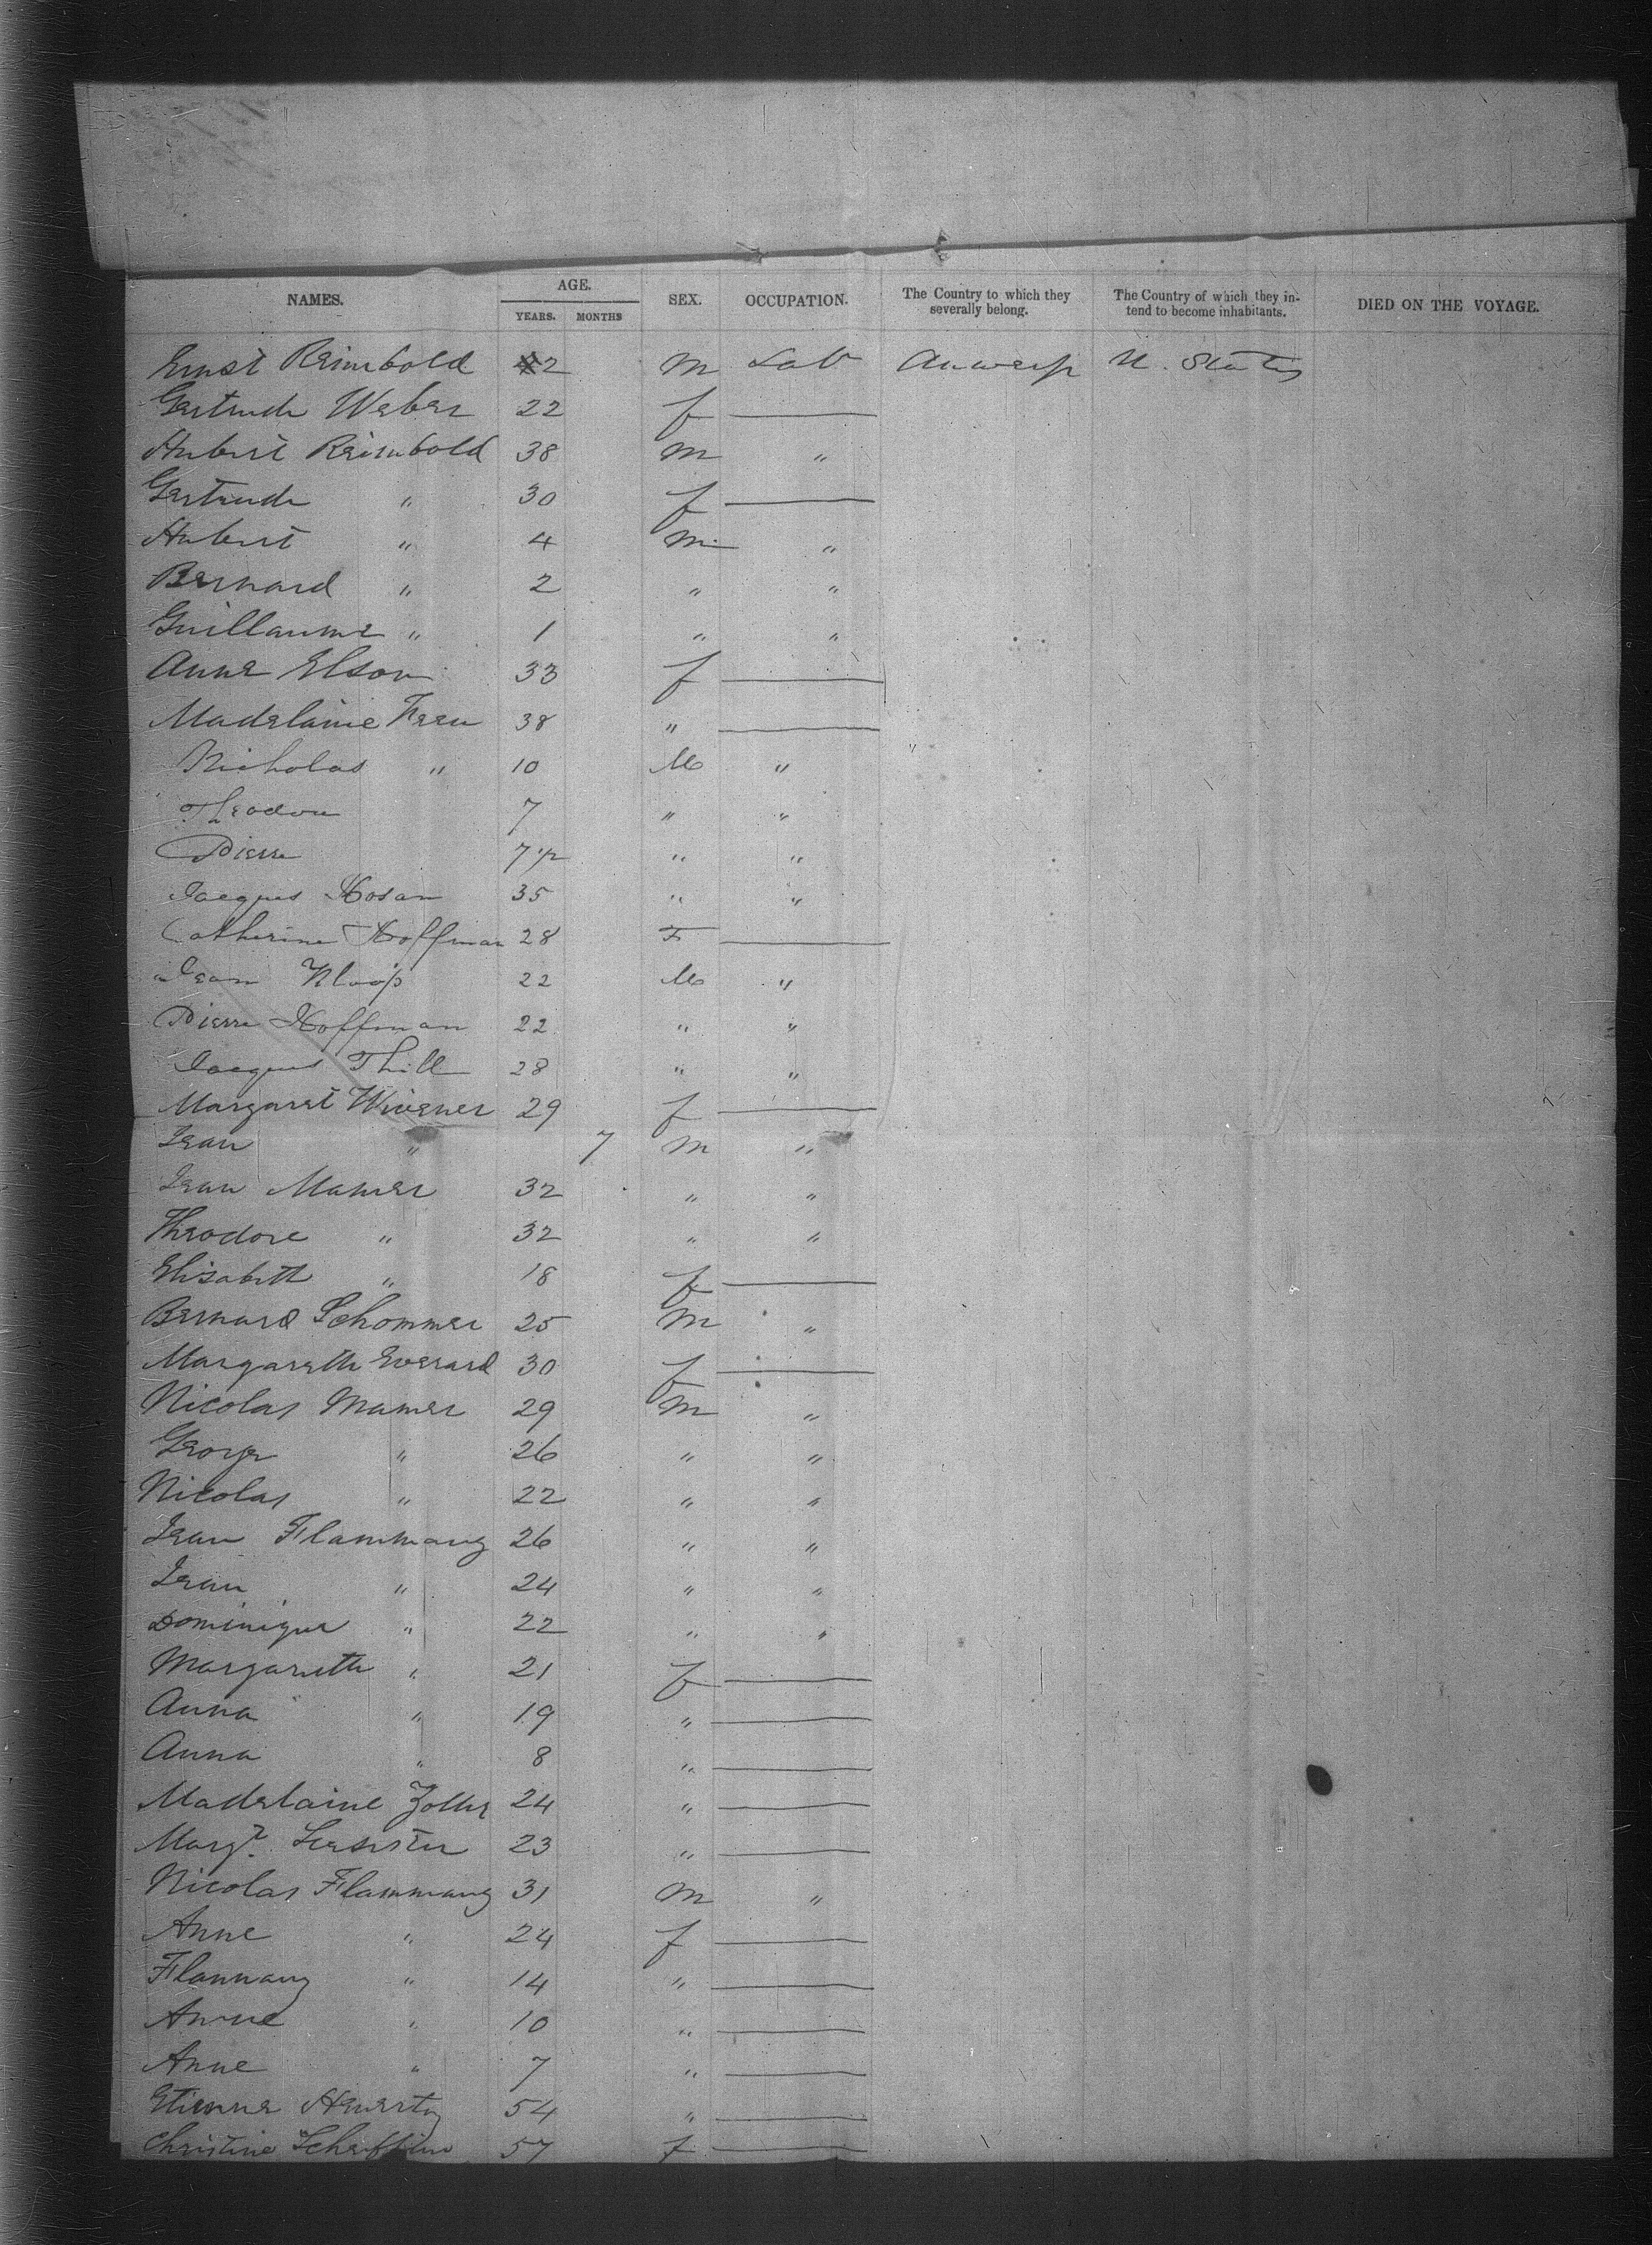 NAMES. AGE. SEX. OCCUPATION. The Country to which they severally belong. The Country of which they intend to become inhabitants. DIED ON THE VOYAGE.
YEARS. MONTHS
Ernst Reimbold 2 m Lab Anwerp U. States
Gertrude Weber 22 f —
Hubert Reimbold 38 m "
Gertrude " 30 f —
Hubert " 4 m "
Bernard " 2 " "
Guillaume " 1 " "
Anne Elson 33 f —
Madelaine Freu 38 " —
Nicholas " 10 M "
Theodore 7 " "
Pierre 7 " "
Jacques Hosan 35 " "
Catherine Hoffman 28 F —
Jean Kloop 22 M "
Pierre Hoffman 22 " "
Jacques Thill 28 " "
Margaret Wivener 29 f —
Jean " 7 m "
Jean Mamer 32 " "
Theodore " 32 " "
Elisabeth " 18 f —
Bernard Schommer 25 m "
Margareth Everard 30 f —
Nicolas Mamer 29 m "
George " 26 " "
Nicolas " 22 " "
Jean Flammang 26 " "
Jean " 24 " "
Dominique " 22 " "
Margareth " 21 f —
Anna " 19 " —
Anna " 8 " —
Madelaine Zoller 24 " —
Margt. 23 " —
Nicolas Flammang 31 m "
Anne " 24 f —
Flannang " 14 " —
Anne " 10 " —
Anne " 7 " —
Etienne 54 " —
Christine 57 f —